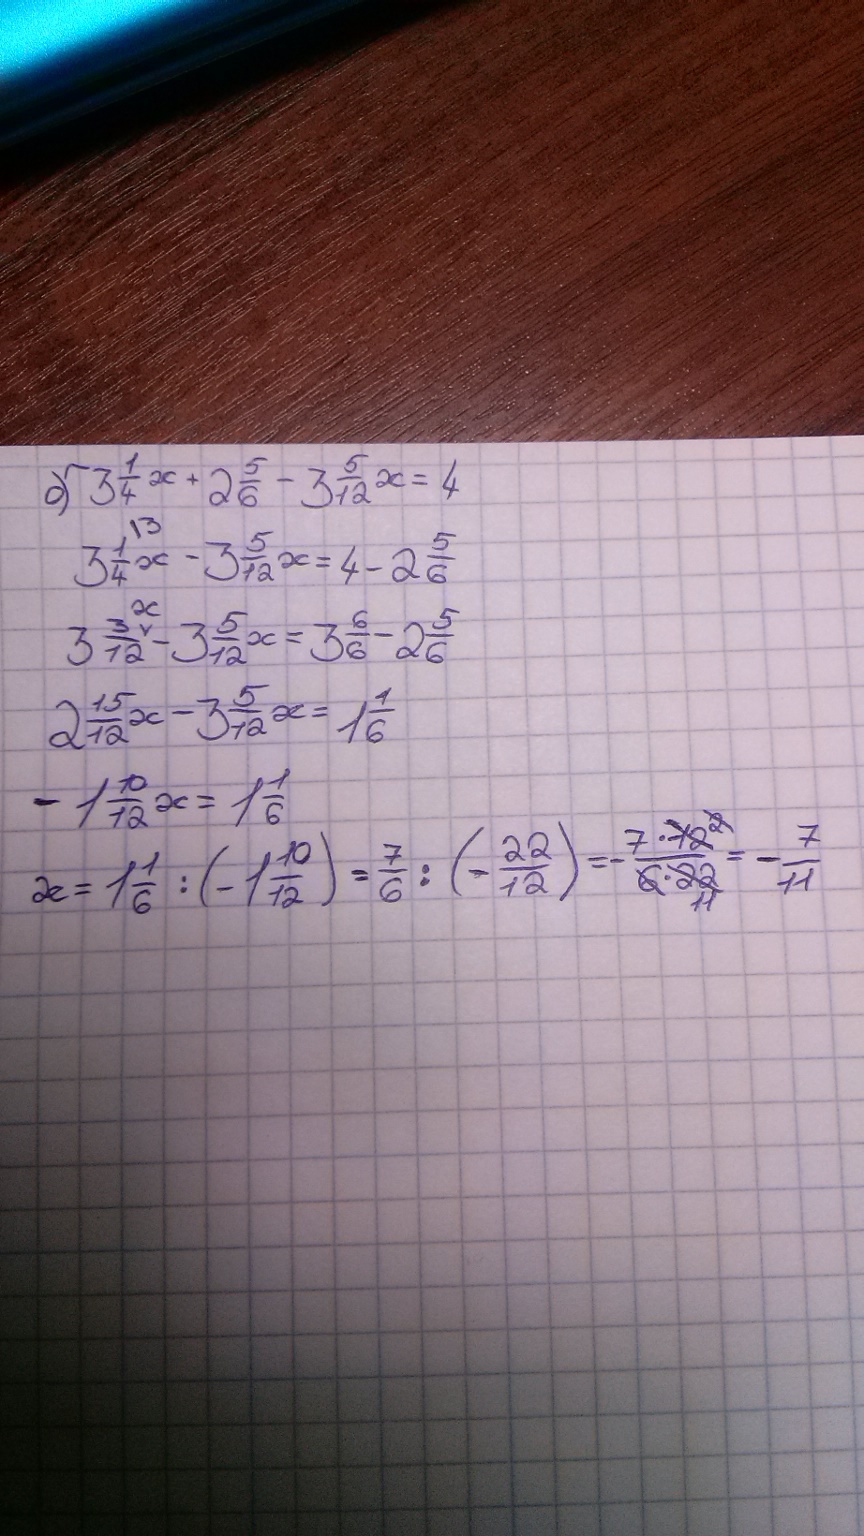 б) 3 1/4 x + 2 5/6 - 3 5/12 x = 4
3 1/4 |3 x - 3 5/12 x = 4 - 2 5/6
3 3/12 x - 3 5/12 x = 3 6/6 - 2 5/6
2 15/12 x - 3 5/12 x = 1 1/6
- 1 10/12 x = 1 1/6
x = 1 1/6 : (- 1 10/12) = 7/6 : (- 22/12) = - 7 · 12 2 / 6 · 22 11 = - 7/11